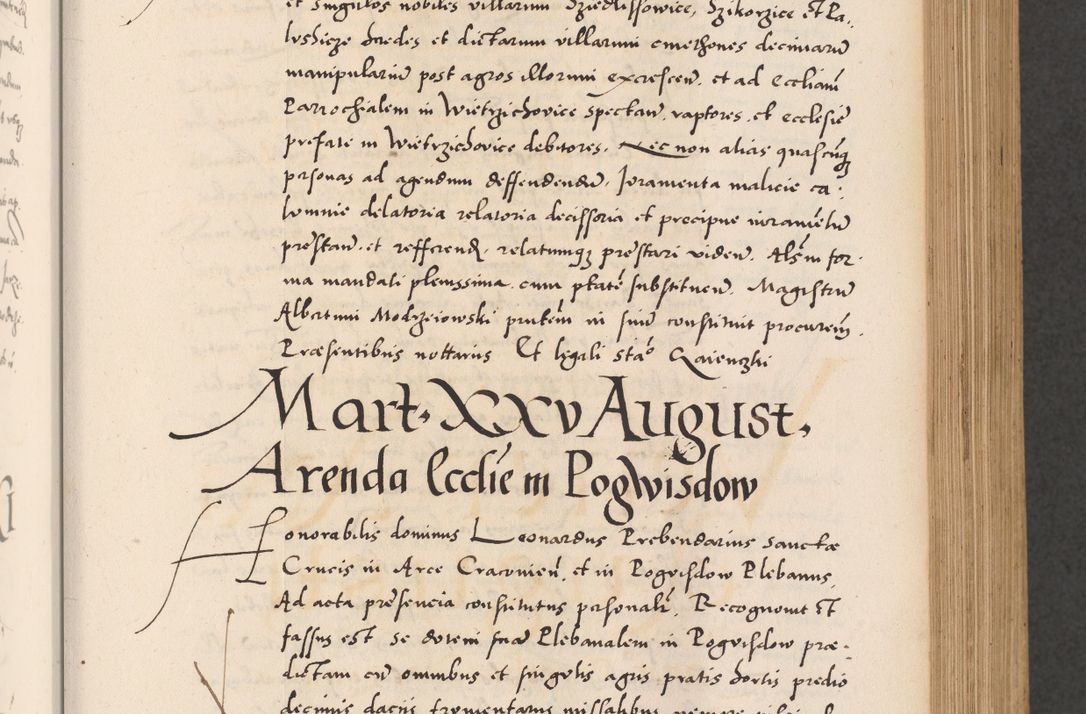 et singulos nobiles villarum Dziedlissowice, Dzikorzice et Pa-
lushicze hæredes et dictarum villarum cmethones decimarū
manipulariū post agros illorum excrescen̄. et ad Eccliam̄
Parrochialem in Wietrzichovice spectan̄. raptores. et ecclesie
prefate in Wietrzichovice debitores. Nec non alias quascūq
p̱sonas ad agendum deffendendū. Juramenta malicie ca-
lumnie delatoria relatoria decissoria et precipue iuramētū
prēstan̄. et refferend. relatumq prēstari viden̄. Als in for-
ma mandati plenissima. cum ptate substituen̄. Magistrū
Albertum Modrzeiowski pntem̄ in suū constituit procurem̄.
Præsentibus nottarius Et legali stā Qaienczki
Mart. XXV August.
Arenda Ecclie in Pogwisdow
Honorabilis dominus Leonardus Prebendarius sanctæ
Crucis in Arce Cracovien̄. et in Pogvisdow Plebanus.
Ad acta prēsencia constitutus p̱sonalr̄. Recognovit et
fassus est se dotem suā Plebanalem in Pogvisdow præ-
dictam cū omnibus et singulis agris pratis hortis predio
decimis daciis frumentariis missalibus